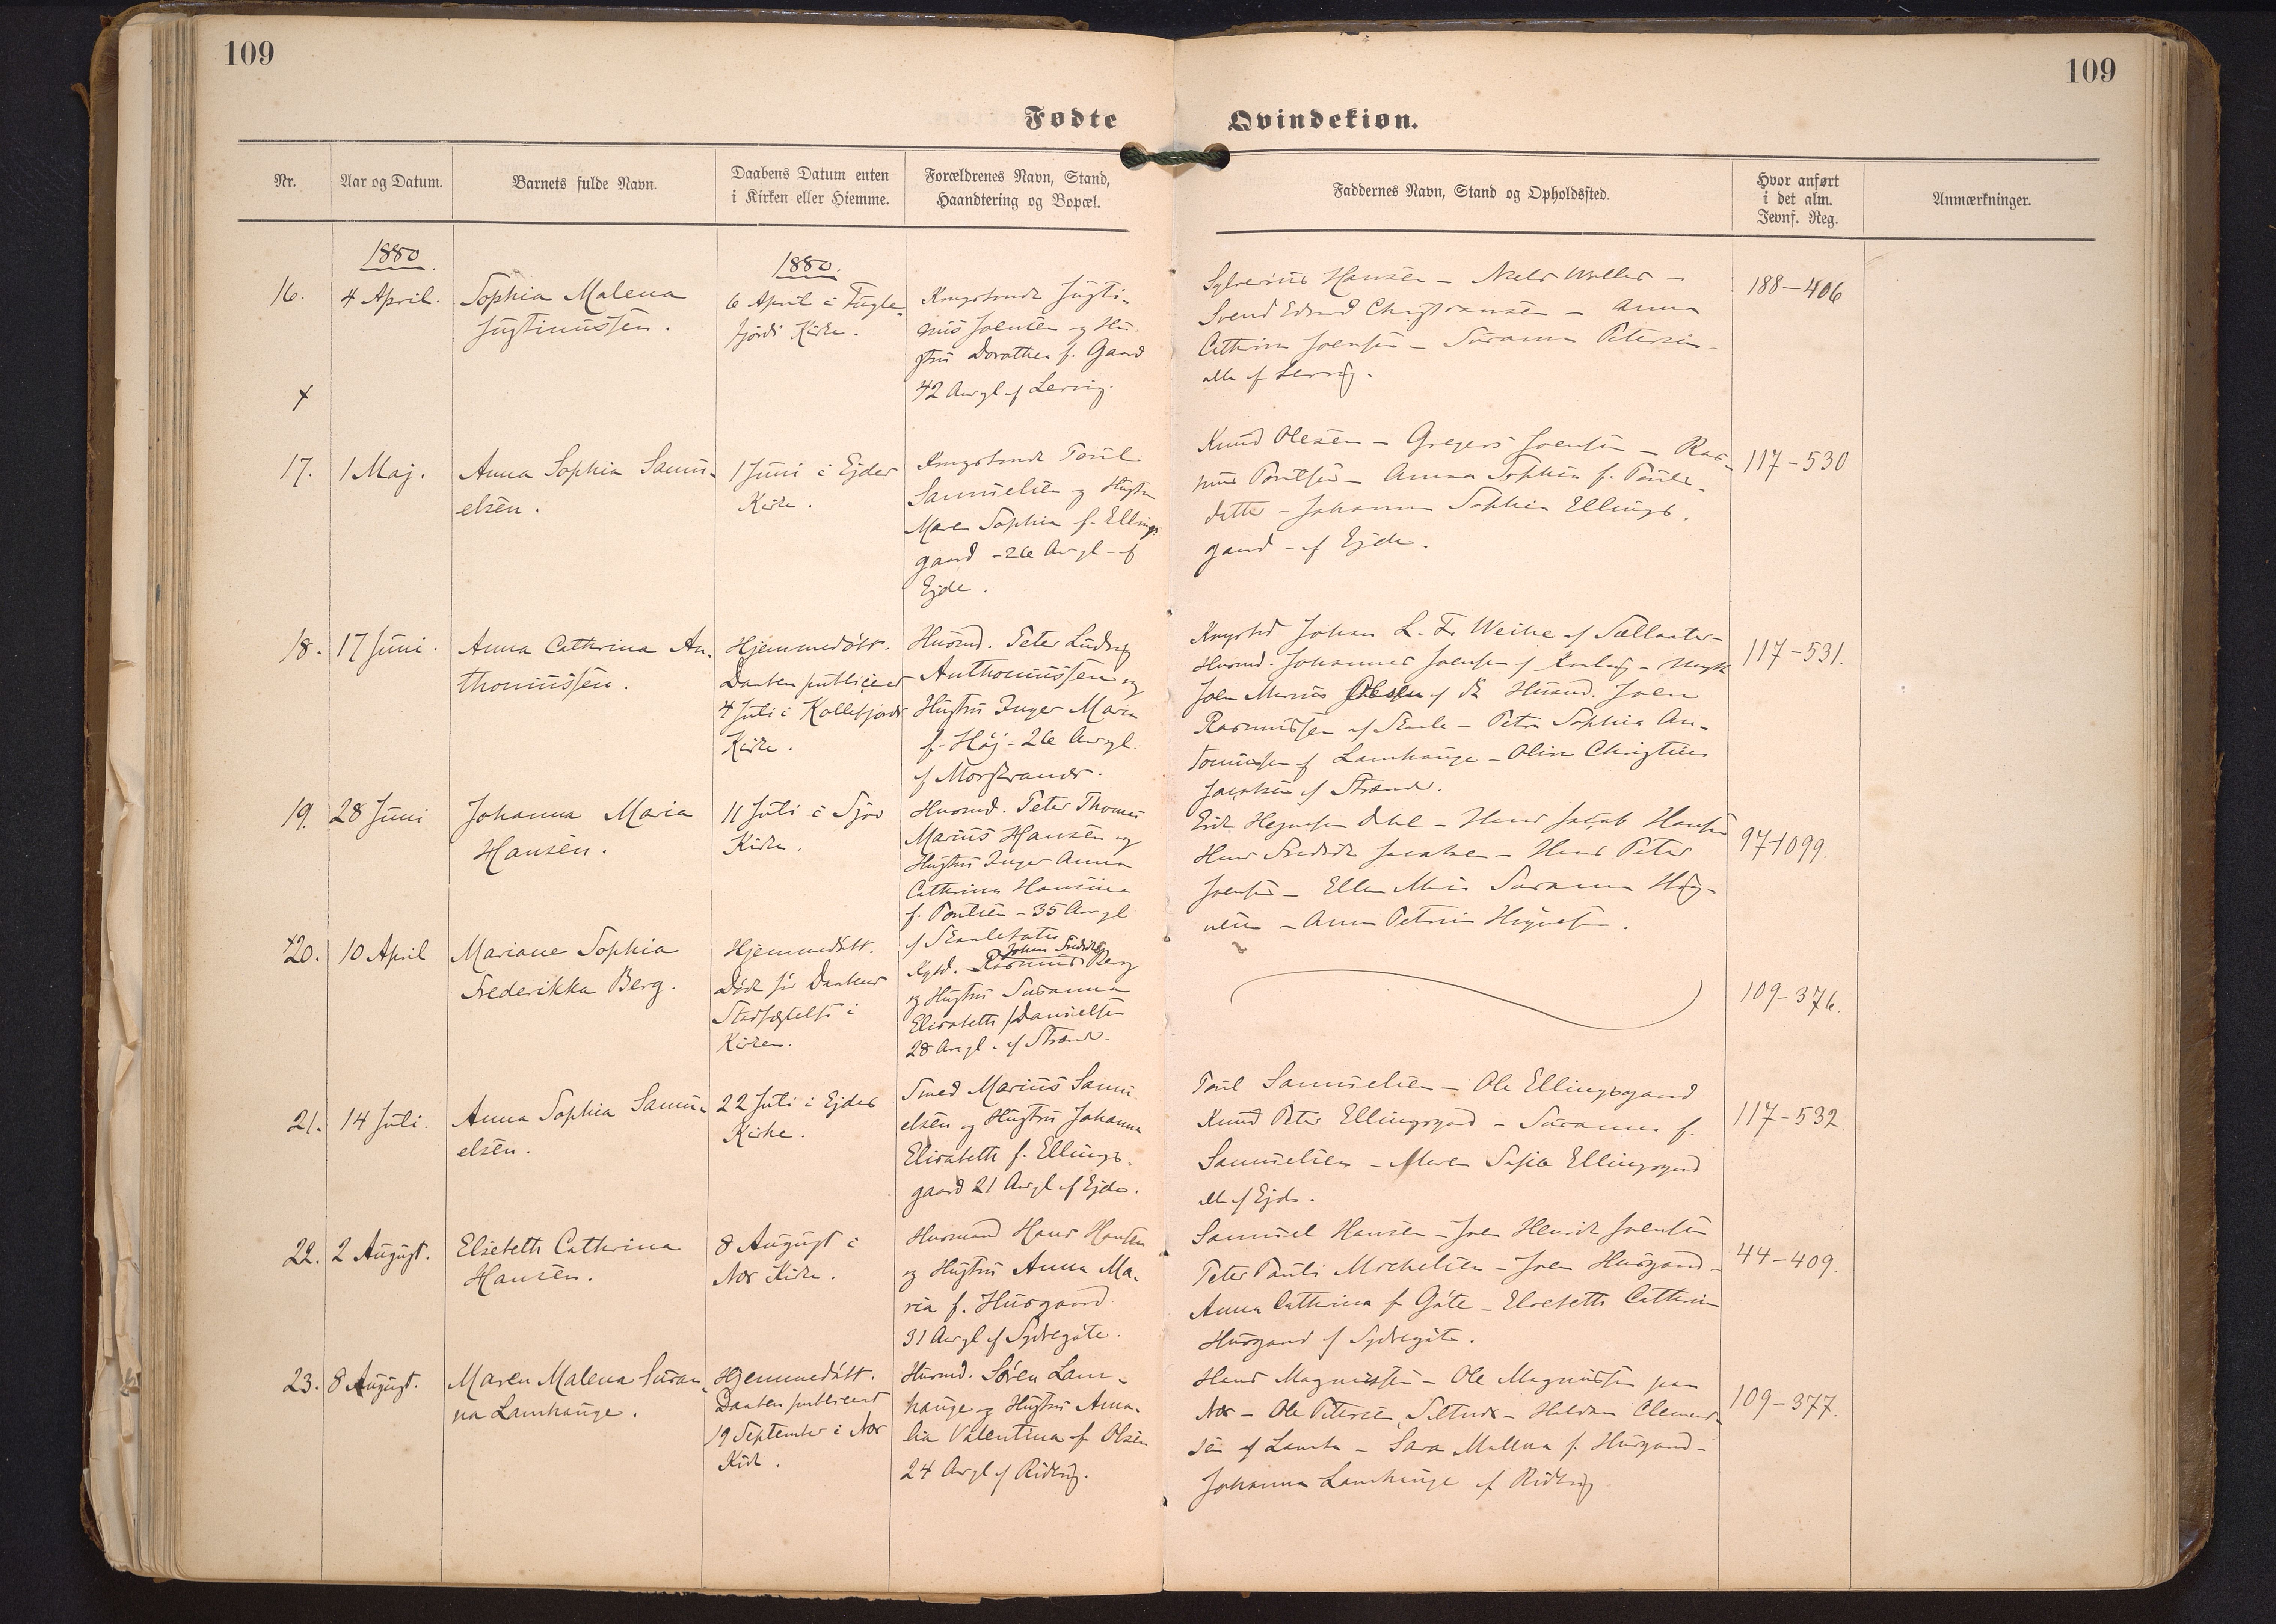 109
109
Fødte
Qvindekiøn.
Nr.
Aar og Datum.
Barnets fulde Navn.
Daabens Datum enten
i Kirken eller Hiemme.
Forældrenes Navn, Stand,
Haandtering og Bopæl.
Faddernes Navn, Stand og Opholdssted.
Hvor anført
i det alm.
Jevnf. Reg.
Anmærkninger.
1880.
1880.
16.
4 April.
Sophia Malena
Justinussen.
6 April i Fugle-
fjords Kirke.
Kongsbonde Justi-
nus Joensen og Hu-
stru Dorothea f. Gaard
42 Aar gl af Lervig.
Sylverius Hansen – Niels Müller –
Svend Edvard Christiansen – Anna
Cathrina Joensen – Susanna Petersen –
alle af Lervig.
188–406
x
17.
1 Maj.
Anna Sophia Samu-
elsen.
1 Juni i Ejdes
Kirke.
Kongsbonde Poul
Samuelsen og Hustru
Maren Sophia f. Ellings-
gaard – 26 Aar gl – af
Ejde.
Knud Olesen – Gregers Joensen – Ras-
mus Poulsen – Anna Sophia f. Pouls-
datter – Johanna Sophia Ellings-
gaard – af Ejde.
117–530
18.
17 Juni.
Anna Cathrina An-
thoniussen.
Hjemmedøbt.
Daaben publiceret
4 Juli i Kollefjords
Kirke.
Husmd. Peter Ludvig
Anthoniussen og
Hustru Inger Maria
f. Høj – 26 Aar gl.
af Morskranes.
Johan L. Fr. Weihe af Sællatter –
Husmd. Johannes Joensen af
Joen Marius Olesen af Husmd. Joen
Rasmussen af Skaale – Petra Sophia An-
toniussen af Lamhauge – Olivia Christine
Jacobsen af Strænd.
117–531.
19.
28 Juni
Johanna Maria
Hansen.
11 Juli i Sjov
Kirke.
Husmd. Peter Thomas
Marius Hansen og
Hustru Inger Anna
Cathrina Hansina
f. Poulsen – 35 Aar gl
af Skaalebotn
Hans Jacob Hansen
Hans Fredrik Jacobsen – Hans Peter
Joensen – Ellen Maria Susanna Høg-
nesen – Anna Petrina Høgnesen.
97–1099.
x20.
10 April
Mariane Sophia
Frederikka Berg.
Hjemmedøbt.
Døde før Daabens
Stadfæstelse i
Kirken.
Johan Fredrik
Kgsd. Rasmus Berg
og Hustru Susanna
Elisabeth f Danielsen
28 Aar gl. af Strænd.
109–376.
21.
14 Juli.
Anna Sophia Samu-
elsen.
22 Juli i Ejdes
Kirke.
Smed Marius Samu-
elsen og Hustru Johanna
Elisabeth f. Ellings-
gaard 21 Aar gl af Ejde.
Poul Samuelsen – Ole Ellingsgaard
Knud Peter Ellingsgaard – Susanna f.
Samuelsen – Maren Sofia Ellingsgaard
alle af Ejde.
117–532.
22.
2 August.
Elsebeth Cathrina
Hansen.
8 August i
Næs Kirke.
Husmand Hans Hansen
og Hustru Anna Ma-
ria f. Husgaard
31 Aar gl af Sydregøte.
Samuel Hansen – Joen Henrik Joensen
Peter Pauli Michelsen – Joen Husgaard –
Anna Cathrina f Gøte – Elsebeth Cathrina
Husgaard af Sydregøte.
44–409.
23.
8 August.
Maren Malena Susan-
na Lamhauge.
Hjemmedøbt.
Daaben publiceret
19 September i Næs
Kirke.
Husmd. Søren Lam-
hauge og Hustru Ama-
lia Valentina f. Olsen
24 Aar gl af Ridevig.
Hans Magnussen – Ole Magnussen paa
Næs – Ole Petersen, Selnæs – Haldan Clemen-
sen af Lamba – Sara Mallena f. Husgaard –
Johanna Lamhauge af Ridevig
109–377.